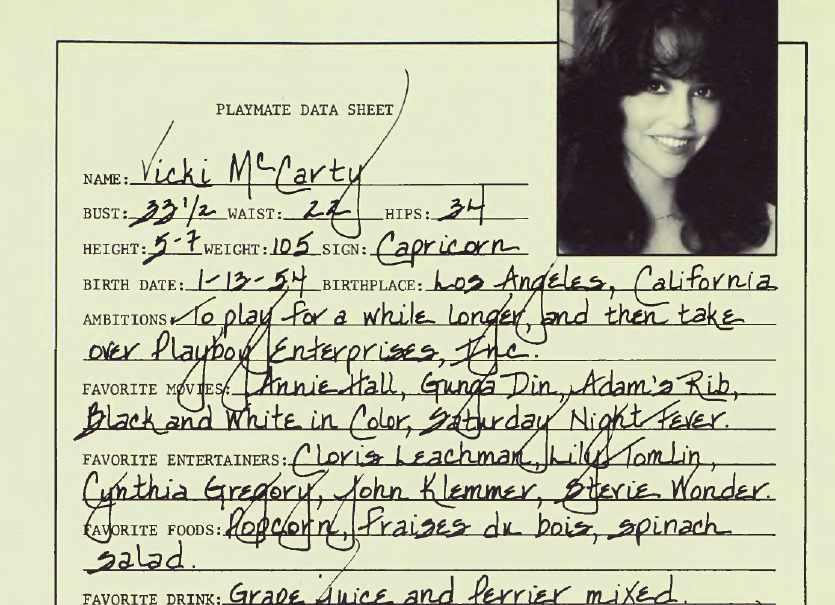 PLAYMATE DATA SHEET
NAME: Vicki McCarty
BUST: 33 1/2 WAIST: 22 HIPS: 34
HEIGHT: 5-7 WEIGHT: 105 SIGN: Capricorn
BIRTH DATE: 1-13-54 BIRTHPLACE: Los Angeles, California
AMBITIONS: To play for a while longer, and then take
over Playboy Enterprises, Inc.
FAVORITE MOVIES: Annie Hall, Gunga Din, Adam's Rib,
Black and White in Color, Saturday Night Fever.
FAVORITE ENTERTAINERS: Cloris Leachman, Lily Tomlin,
Cynthia Gregory, John Klemmer, Stevie Wonder.
FAVORITE FOODS: Popcorn, fraises du bois, spinach
salad.
FAVORITE DRINK: Grape juice and Perrier mixed.